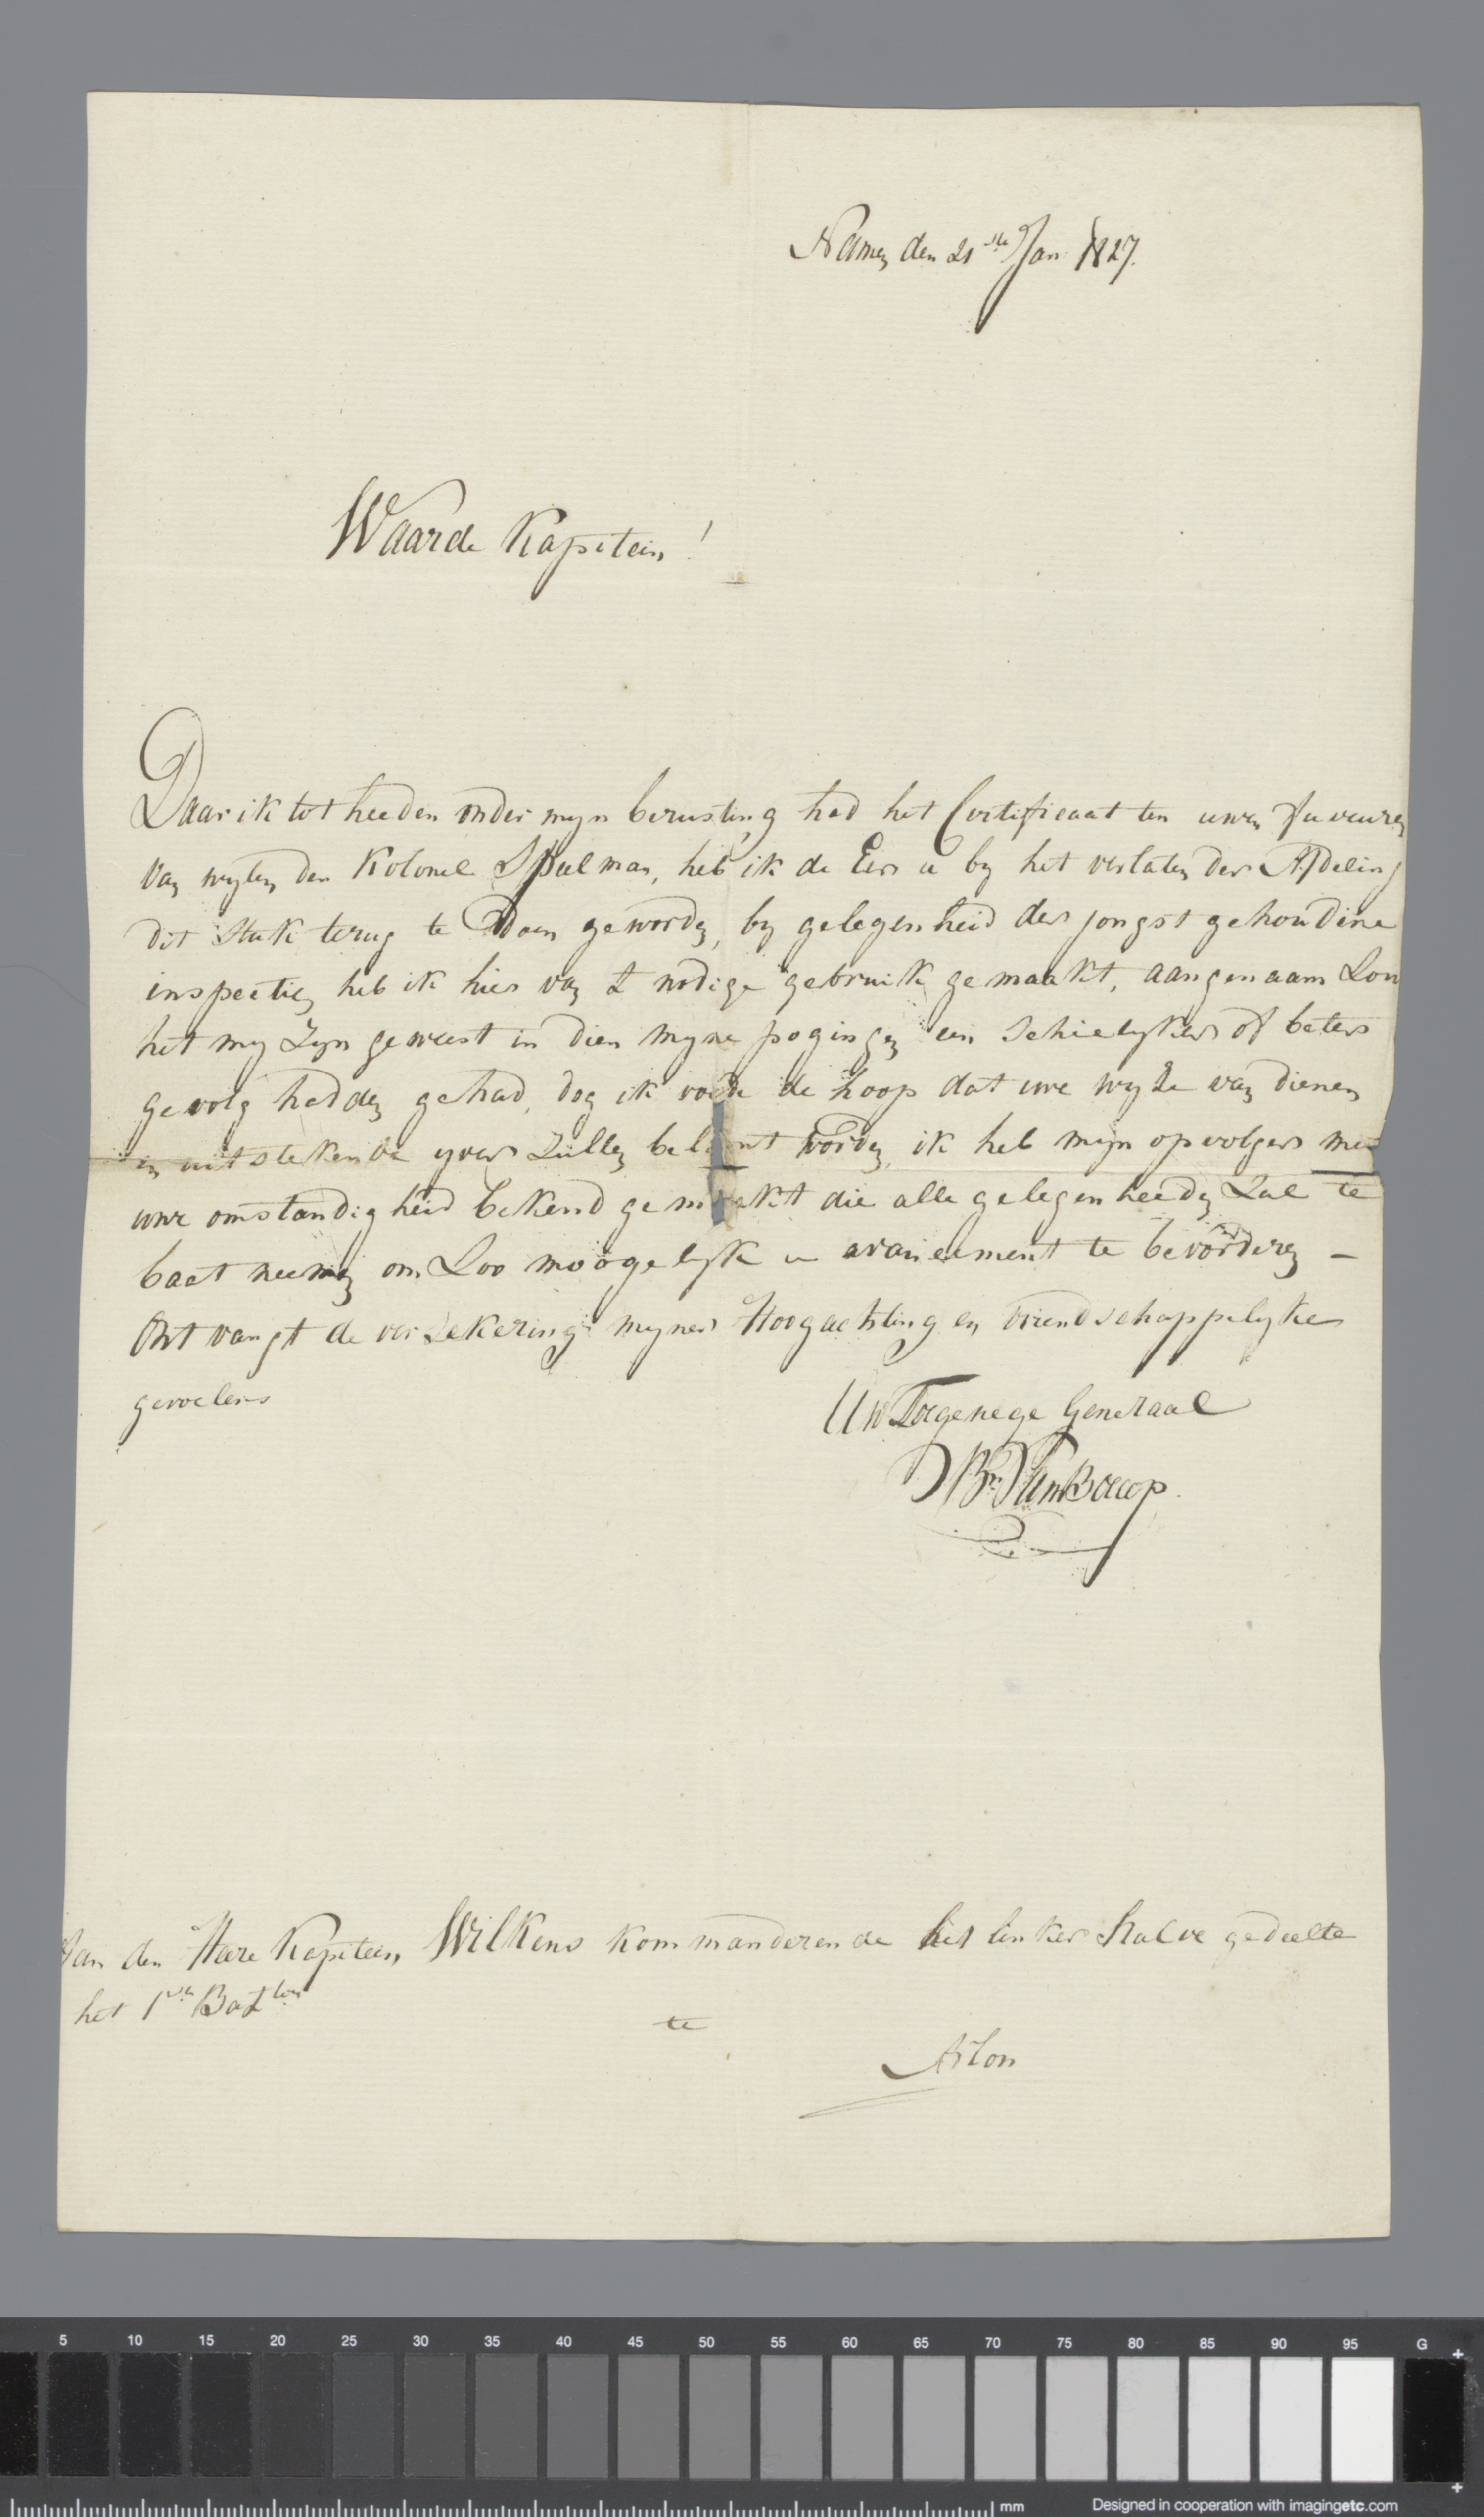 Namen den 21ste Jan 1827.
Waarde Kapitein!
Daar ik tot heeden onder mijn berusting had het Certificaat ten uwen faveuren
van wylen den Kolonel Speelman, heb ik de Eer u by het verlaten der Afdeling
dit stuk terug te doen geworden, by gelegenheid der jongst gehoudene
inspectien heb ik hier van t nodige gebruik gemaakt, aangenaam Zou
het my Zyn geweest in dien myne pogingen een schielyker of beter
gevolg hadden gehad, dog ik voede de hoop dat uwe wyze van dienen
en uitstekende yver Zullen beloont worden, ik heb mijn opvolger met
uwe omstandigheid bekend gemaakt die alle gelegenheeden Zal te
baat neemen om Zoo moogelyk u avancement te bevorderen –
Ontvangt de verzekering myner Hoogachting en vriendschappelyke
gevoelens
Uw Toegenege Generaal
Bn Van Boecop.
Aan den Heere Kapitein Wilkens kommanderende het linker halve gedeelte
het 1ste Batlon
te
Arlon
5 10 15 20 25 30 35 40 45 50 55 60 65 70 75 80 85 90 95 G
mm Designed in cooperation with imagingetc.com